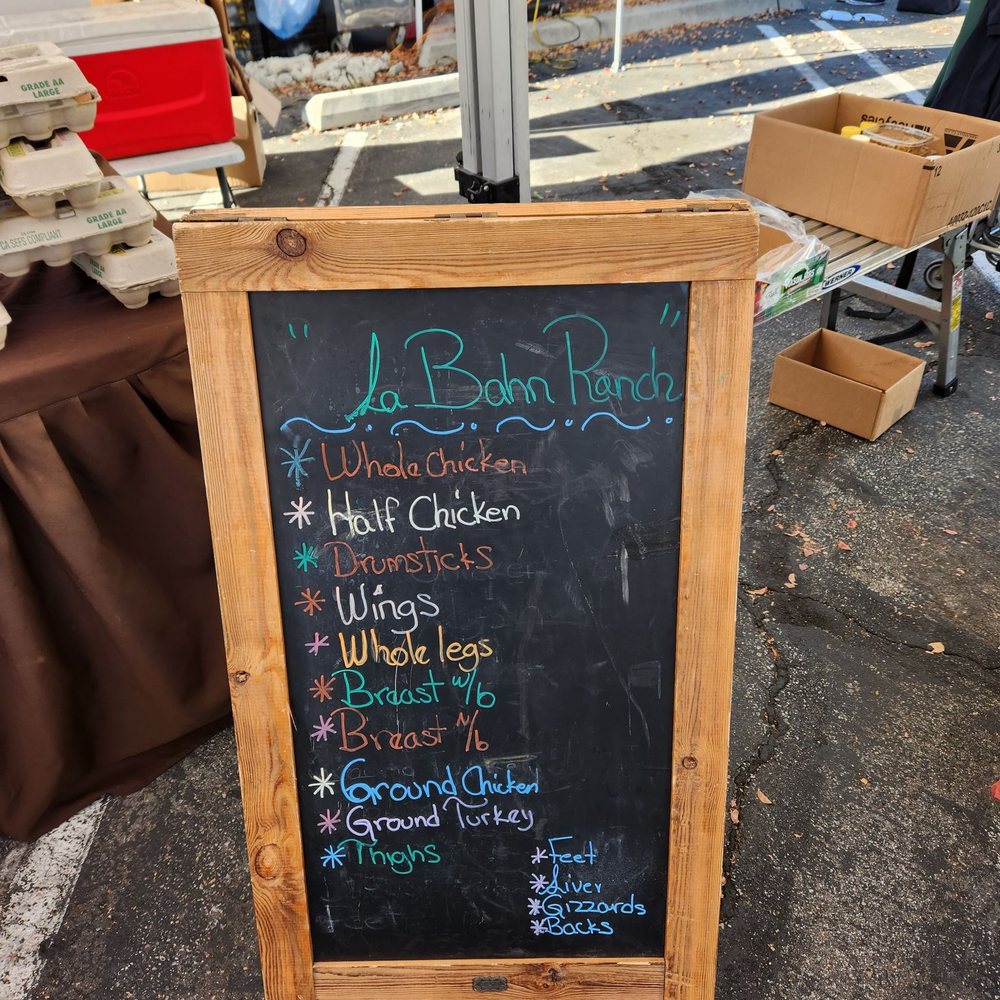 GRADE AA
LARGE
GRADE AA
LARGE
CA SEFS COMPLIANT
WERNER
" La Bahn Ranch "
* Whole Chicken
* Half Chicken
* Drumsticks
* Wings
* Whole legs
* Breast w/b
* Breast N/b
* Ground Chicken
* Ground Turkey
* Thighs
* Feet
* Liver
* Gizzards
* Backs